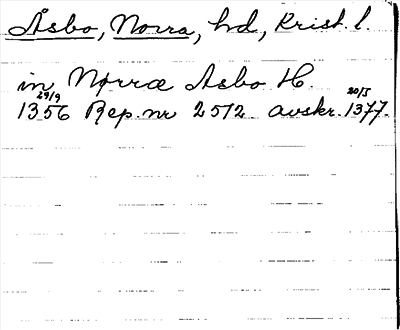 Åsbo, Norra, hd, Krist. l.
in Nørræ Asbo H.
29/9 20/5
1356 Rep. nr 2512. avskr. 1377.